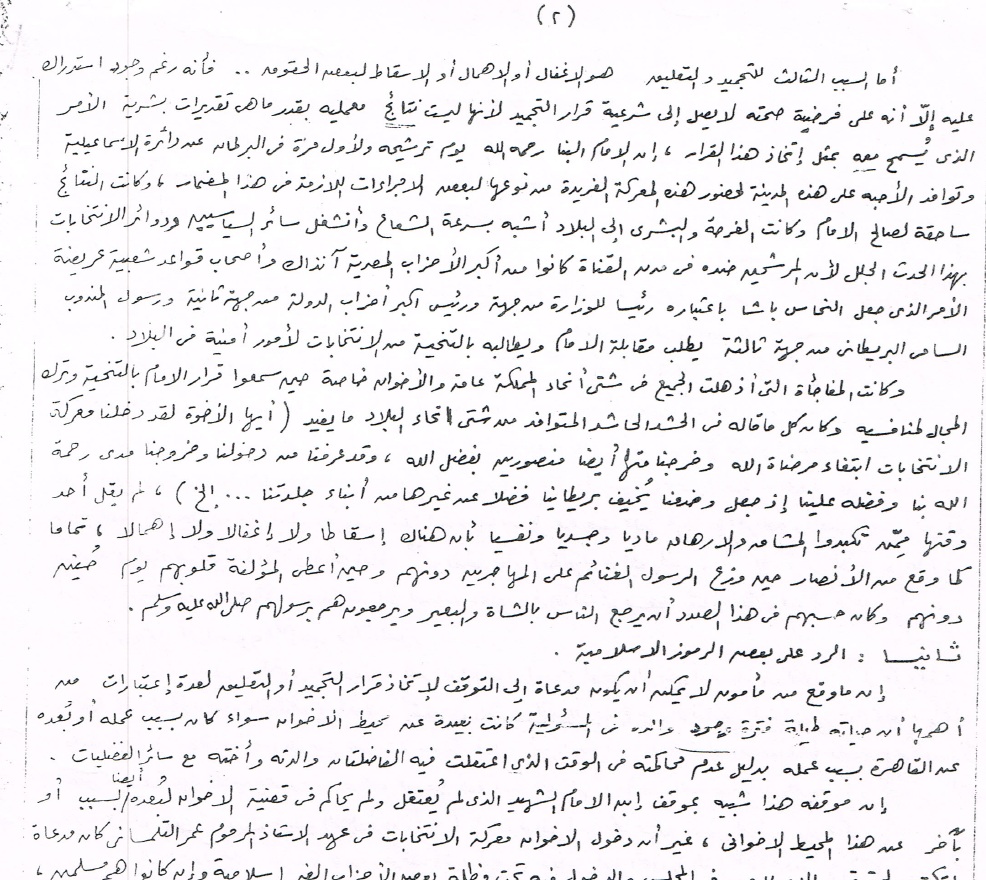 (٢)
أما السبب الثالث للتجميد والتعليق هو الاغفال أو الاهمال أو الاسقاط لبعض الحقوق .. فأنه رغم وجود استدراك
عليه إلّا أنه على فرضية صحته لا يصل إلى شرعية قرار التجميد لأنها ليست نتائج معمليه بقدر ماهى تقديرات بشرية الأمر
الذى يُسمح معه بمثل إتخاذ هذا القرار ، إن الامام البنا رحمه الله يوم ترشيحه ولأول مرة فى البرلمان عن دائرة الاسماعيلية
وتوافد الأحبه على هذه المدينة لحضور هذه المعركة الفريدة من نوعها لبعض الاجراءات اللازمة فى هذا المضمار ، وكانت النتائج
ساحقة لصالح الامام وكانت الفرحة والبشرى إلى البلاد أشبه بسرعة الشعاع وأنشغل سائر السياسيين ودوائر الانتخابات
بهذا الحدث الجلل لأن المرشحين ضده فى مدن القناة كانوا من أكبر الأحزاب المصرية آنذاك وأصحاب قواعد شعبية عريضة
الأمر الذى جعل النحاس باشا باعتباره رئيسا للوزارة من جهة ورئيس اكبر أحزاب الدولة من جهة ثانية ورسول المندوب
السامى البريطانى من جهة ثالثة يطلب مقابلة الامام ويطالبه بالتنحية من الانتخابات لأمور أمنية فى البلاد .
وكانت المفاجأة التى أذهلت الجميع فى شتى أنحاء المملكة عامة والأخوان خاصة حين سمعوا قرار الامام بالتنحية وترك
المجال لمنافسيه وكان كل ماقاله فى الحشد الحاشد المتوافد من شتى انحاء البلاد ما يفيد ( أيها الأخوة لقد دخلنا معركة
الانتخابات ابتغاء مرضاة الله وخرجنا منها أيضا منصورين بفضل الله ، وقد عرفنا من دخولنا وخروجنا مدى رحمة
الله بنا وفضله علينا إذ جعل وضعنا يُخيف بريطانيا فضلا عن غيرها من أبناء جلدتنا ... إلخ ) ، لم يقل أحد
وقتها مِمّن تكبدوا المشاق والارهاق ماديا وجسديا ونفسيا بأن هناك إسقاطا ولا إغفالا ولا إهمالا ، تماما
كما وقع من الأنصار حين وزع الرسول الغنائم على المهاجرين دونهم وحين أعطى المؤلفة قلوبهم يوم حُنين
دونهم وكان حسبهم فى هذا الصدد أن يرجع الناس بالشاة والبعير ويرجعون هم برسولهم صلى الله عليه وسلم .
ثانيا : الرد على بعض الرموز الاسلامية .
إن ماوقع من مأمون لا يمكن أن يكون مدعاة إلى التوقف لإتخاذ قرار التجميد أو التعليق لعدة إعتبارات من
أهمها أن حياته طيلة فترة وجود والده فى المسئولية كانت بعيدة عن محيط الاخوان سواء كان بسبب عمله أو بُعده
عن القاهرة بسبب عمله بدليل عدم محاكمته فى الوقت الذى اعتقلت فيه الفاضلتان والدته وأخته مع سائر الفضليات .
إن موقفه هذا شبيه بموقف إبن الامام الشهيد الذى لم يُعتقل ولم يحاكم فى قضية الاخوان لبُعده أيضا لسبب أو
بآخر عن هذا المحيط الاخوانى ، غير أن دخول الاخوان معركة الانتخابات فى عهد الاستاذ المرحوم عمر التلمسانى كان مدعاة
فى المجلس والدخول فيه تحت مظلة بعض الأحزاب الغير إسلامية وإن كانوا هم مسلمين ،